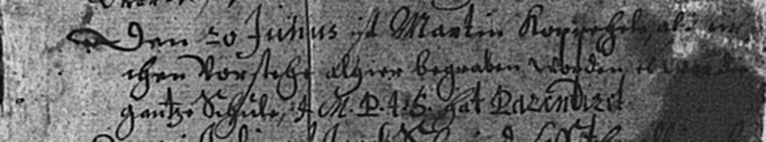 Den 20 Junius ist Martin Koppehel, als
chen Vorsteher alhier begraben worden,
gantze Schule, d M. P. 4. 5. hat Parentiret